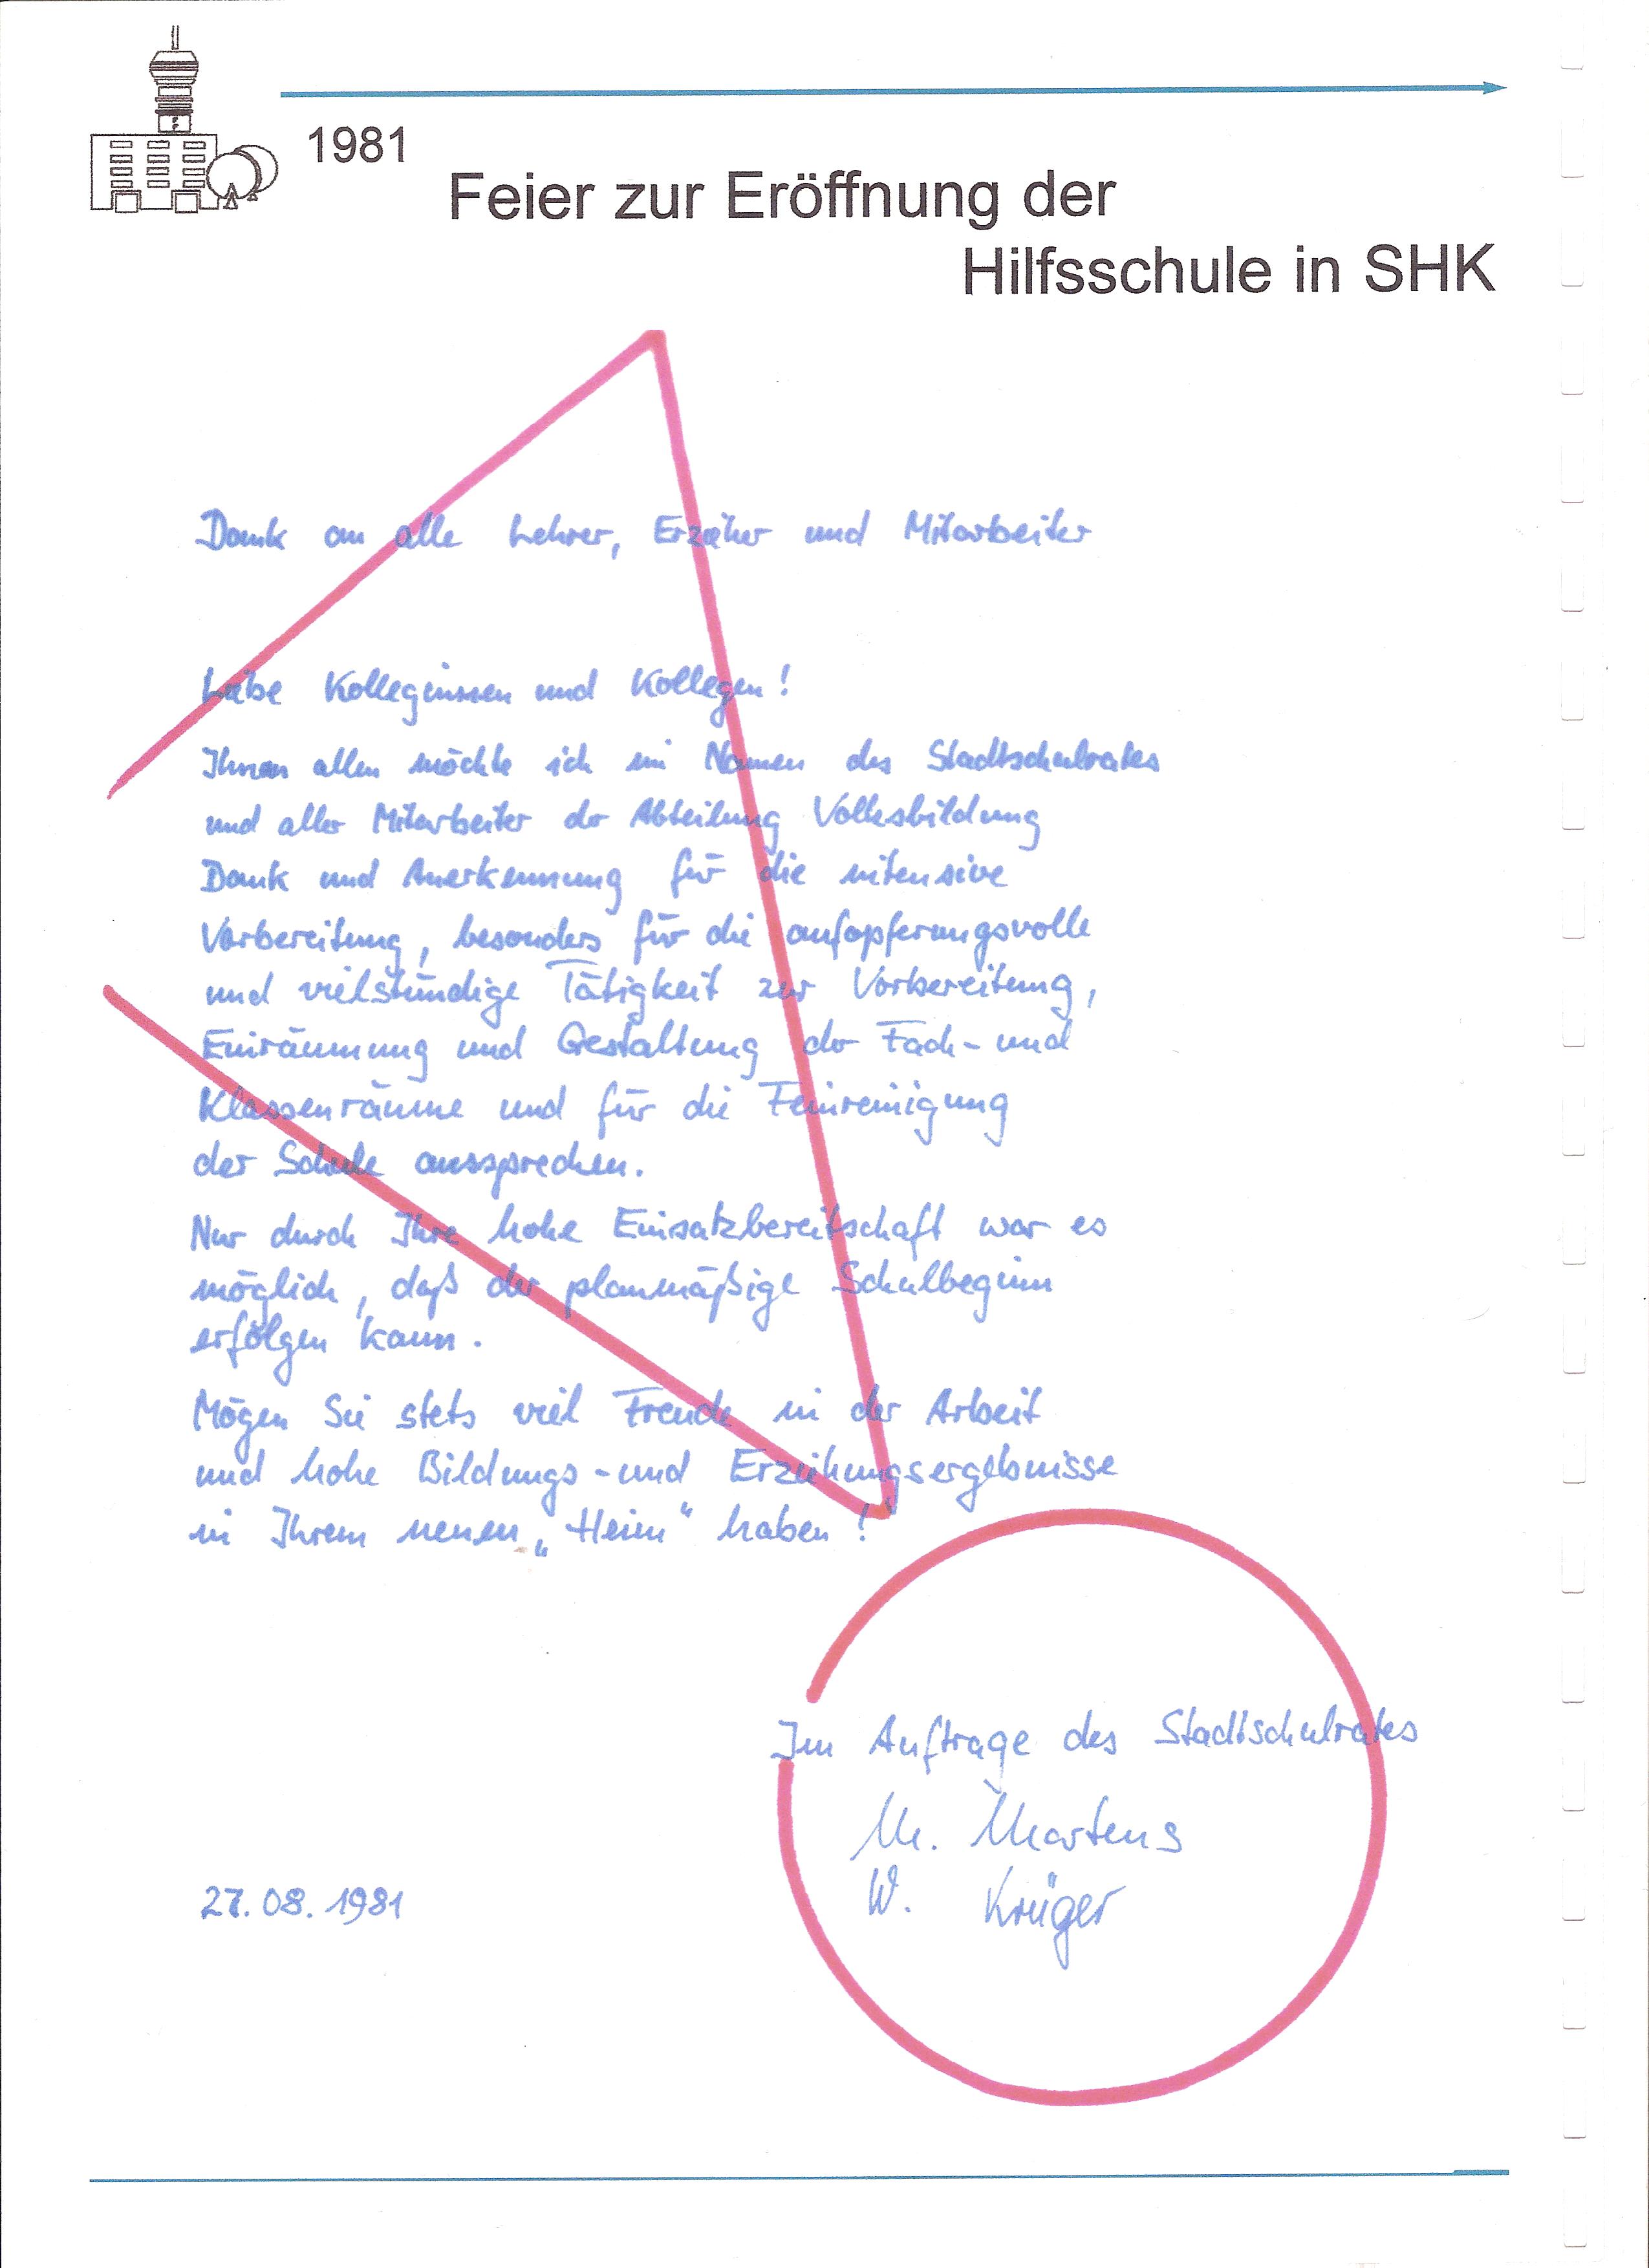 1981
Feier zur Eröffnung der
Hilfsschule in SHK
Dank an alle Lehrer, Erzieher und Mitarbeiter
Liebe Kolleginnen und Kollegen!
Ihnen allen möchte ich im Namen des Stadtschulrates
und aller Mitarbeiter der Abteilung Volksbildung
Dank und Anerkennung für die intensive
Vorbereitung, besonders für die aufopferungsvolle
und vielstündige Tätigkeit zur Vorbereitung,
Einräumung und Gestaltung der Fach- und
Klassenräume und für die Feinreinigung
der Schule aussprechen.
Nur durch Ihre hohe Einsatzbereitschaft war es
möglich, daß der planmäßige Schulbeginn
erfolgen kann.
Mögen Sie stets viel Freude in der Arbeit
und hohe Bildungs- und Erziehungsergebnisse
in Ihrem neuen „Heim“ haben!
Im Auftrage des Stadtschulrates
M. Martens
W. Krüger
27.08.1981